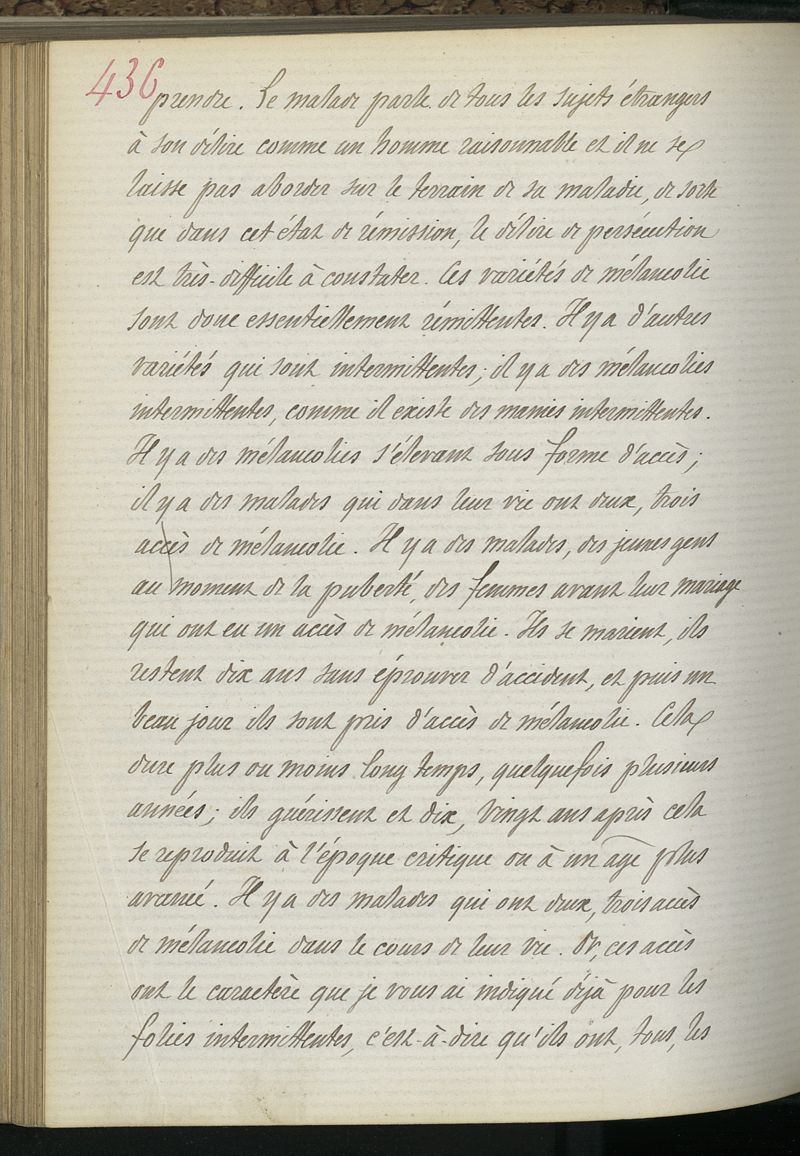 436
prendre. Le malade parle de tous les sujets étrangers
à son délire comme un homme raisonnable et il ne se
laisse pas aborder sur le terrain de sa maladie, de sorte
que dans cet état de rémission, le délire de persécution
est très-difficile à constater. Ces variétés de mélancolie
sont donc essentiellement rémittentes. Il y a d'autres
variétés qui sont intermittentes; il y a des mélancolies
intermittentes, comme il existe des manies intermittentes.
Il y a des mélancolies s'élevant sous forme d'accès;
il y a des malades qui dans leur vie ont deux, trois
accès de mélancolie. Il y a des malades, des jeunes gens
au moment de la puberté, des femmes avant leur mariage
qui ont eu un accès de mélancolie. Ils se marient, ils
restent dix ans sans éprouver d'accident, et puis un
beau jour ils sont pris d'accès de mélancolie. Cela
dure plus ou moins long temps, quelquefois plusieurs
années; ils guérissent et dix, vingt ans après cela
se reproduit à l'époque critique ou à un age plus
avancé. Il y a des malades qui ont deux, trois accès
de mélancolie dans le cours de leur vie. Or, ces accès
ont le caractère que je vous ai indiqué déjà pour les
folies intermittentes, c'est-à-dire qu'ils ont, tous, les